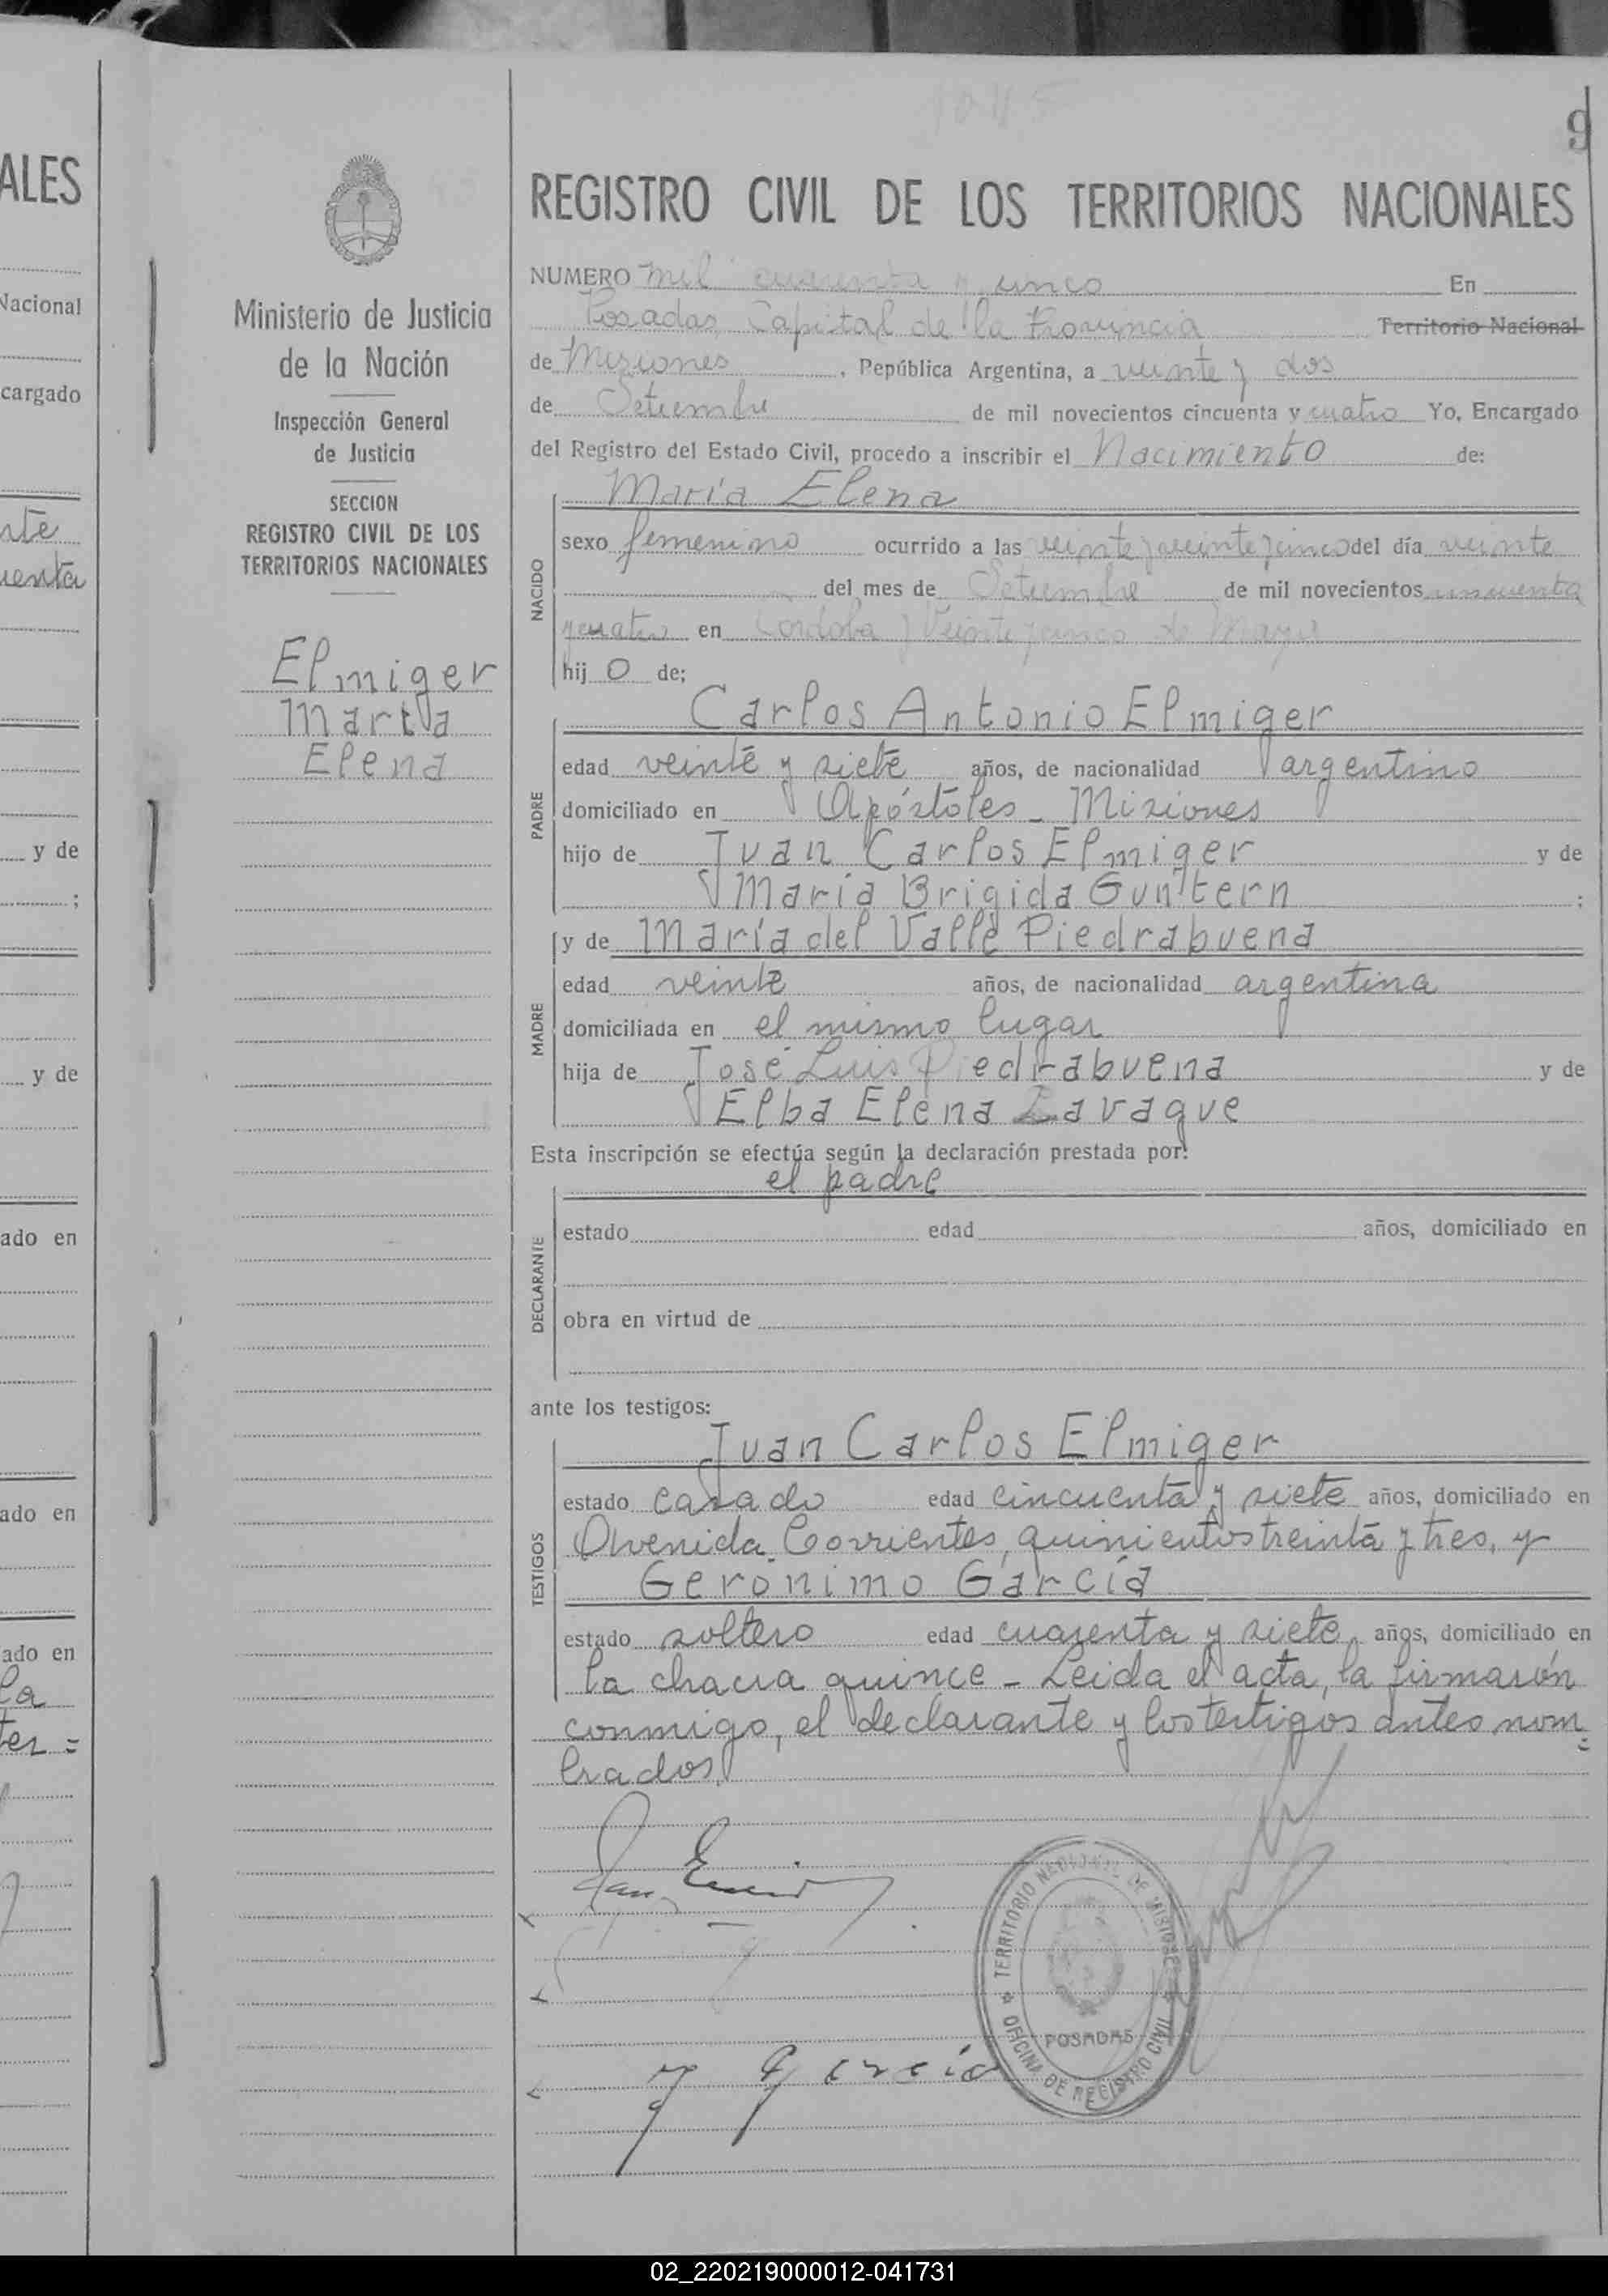 9
ALES
Nacional
cargado
y de
;
y de
ado en
ado en
ado en
la
Ministerio de Justicia
de la Nación
Inspección General
de Justicia
SECCION
REGISTRO CIVIL DE LOS
TERRITORIOS NACIONALES
Elmiger
María
Elena
REGISTRO CIVIL DE LOS TERRITORIOS NACIONALES
NUMERO mil cuarenta y cinco En
Posadas, Capital de la Provincia Territorio Nacional
de Misiones, República Argentina, a veinte y dos
de Setiembre de mil novecientos cincuenta y cuatro Yo, Encargado
del Registro del Estado Civil, procedo a inscribir el Nacimiento de:
María Elena
NACIDO
sexo femenino ocurrido a las veinte y veinte y cinco del día veinte
del mes de Setiembre de mil novecientos cincuenta
y cuatro en Córdoba y Veinte y cinco de Mayo
hij o de;
Carlos Antonio Elmiger
PADRE
edad veinte y siete años, de nacionalidad argentino
domiciliado en Apóstoles - Misiones
hijo de Juan Carlos Elmiger y de
María Brigida Guntern ;
y de María del Valle Piedrabuena
MADRE
edad veinte años, de nacionalidad argentina
domiciliada en el mismo lugar
hija de José Luis Piedrabuena y de
Elba Elena Lavaque
Esta inscripción se efectúa según la declaración prestada por:
el padre
DECLARANTE
estado edad años, domiciliado en
obra en virtud de
ante los testigos:
Juan Carlos Elmiger
TESTIGOS
estado casado edad cincuenta y siete años, domiciliado en
Avenida Corrientes, quinientos treinta y tres, y
Geronimo García
estado soltero edad cuarenta y siete años, domiciliado en
la chacra quince - Leida el acta, la firmarón
conmigo, el declarante y los testigos antes nom=
brados.
TERRITORIO NACIONAL DE MISIONES
POSADAS
OFICINA DE REGISTRO CIVIL
J Garcia
02_220219000012-041731